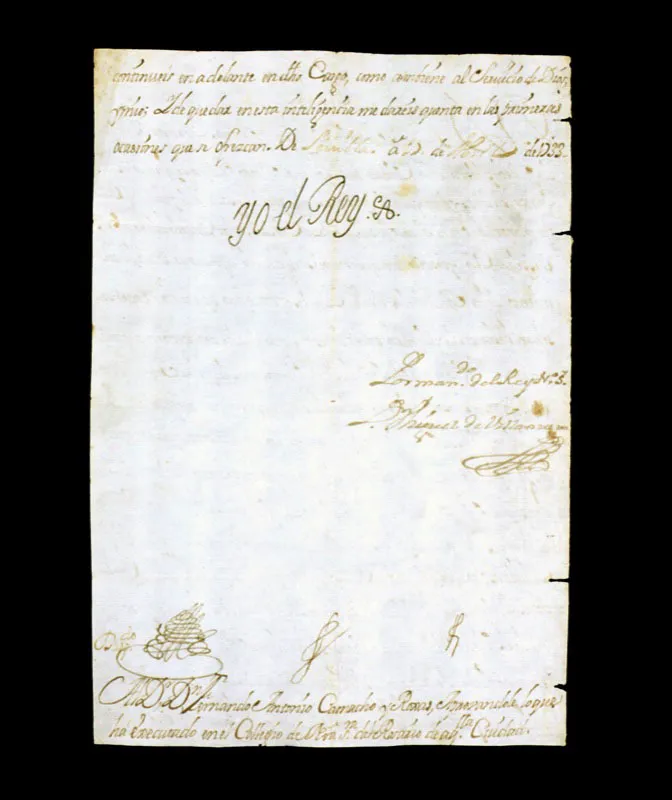 continueis en adelante en dho Cargo, como combiene al Servicio de Dios,
y mio; Y de quedar en esta inteligencia me dareis quenta en las primeras
ocasiones que se ofrezcan. De Sevilla à de Abril de 1733.
yo el Rey
Por man.do del Rey Nro. Sr.
Dn. Miguel de Villanueva
Al Dr. Dn. Fernando Antonio Camacho y Roxas, Aprovandole lo que
ha executado en el Collegio de Nra. Sra. del Rosario de aqlla Ciudad.